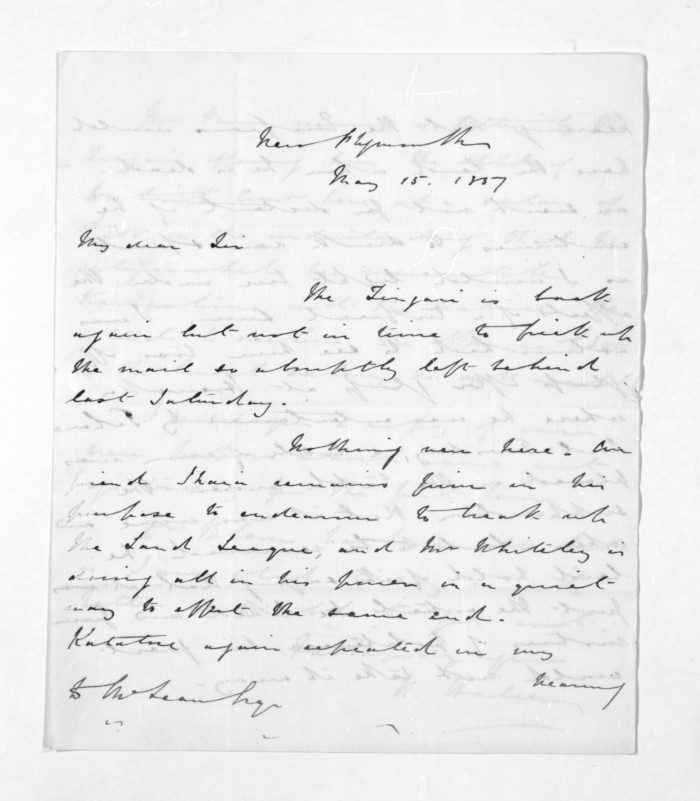 New Plymouth
May 15. 1857
My dear Sir
The Zingari is back
again but not in time to pick up
the mail so abruptly left behind
last Saturday.
Nothing new here - Our
friend Ihaia remains firm in his
purpose to endeavour to break up
the Land League, and Mr Whiteley is
doing all in his power in a quiet
way to effect the same end.
Katatore again repeated in my
hearing
D McLean Esqr